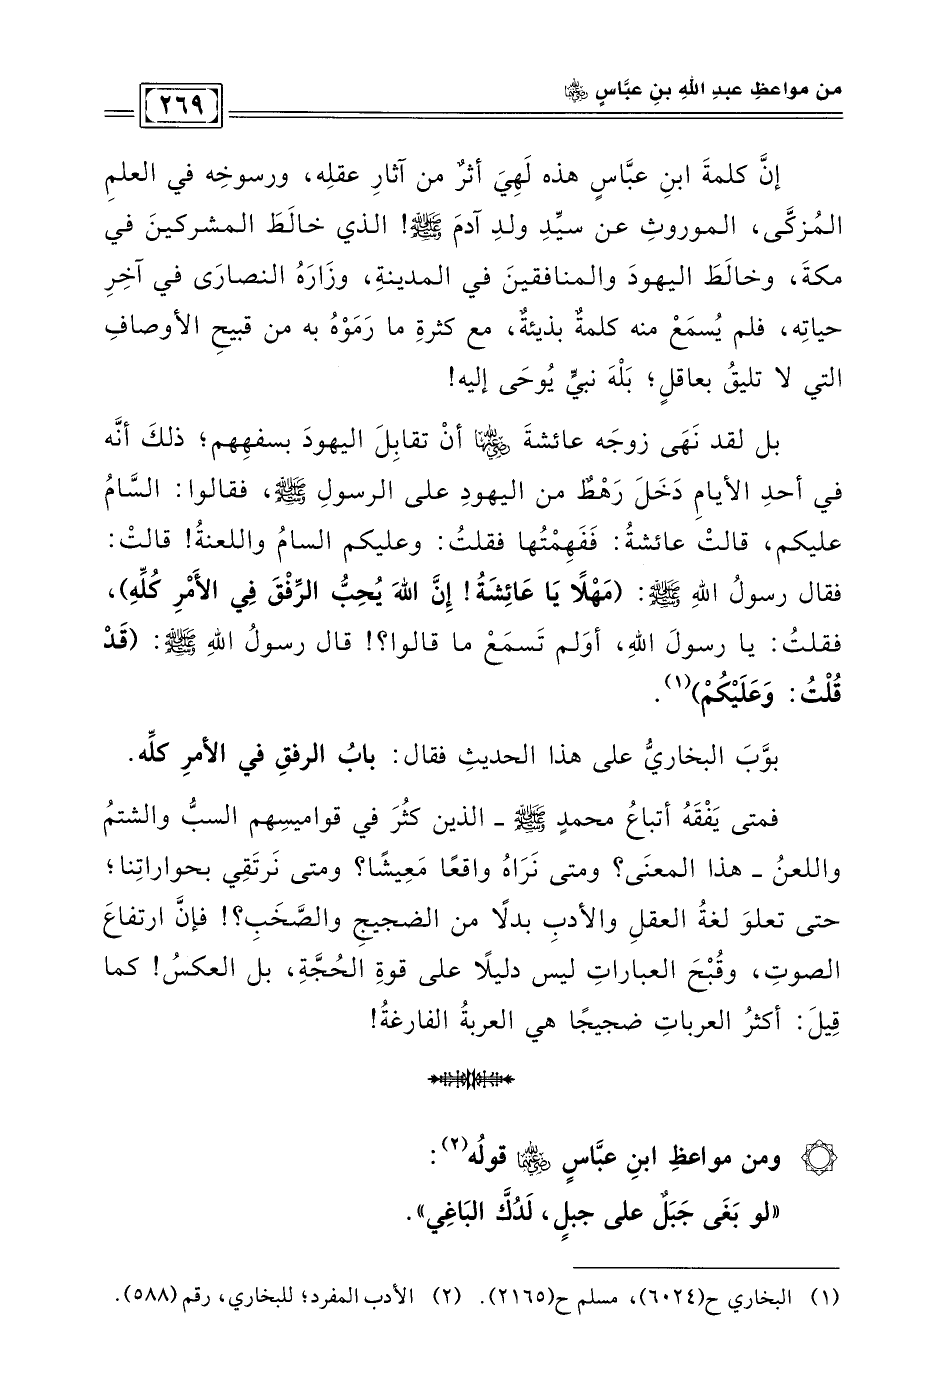 من مواعظِ عبدِ اللهِ بنِ عبَّاسٍ ﵄
٢٦٩
إنَّ كلمةَ ابنِ عبَّاسٍ هذه لَهِيَ أثرٌ من آثارِ عقلِه، ورسوخِه في العلمِ
المُزكَّى، الموروثِ عن سيِّدِ ولدِ آدمَ ﷺ! الذي خالَطَ المشركينَ في
مكةَ، وخالَطَ اليهودَ والمنافقينَ في المدينةِ، وزَارَهُ النصارَى في آخِرِ
حياتِه، فلم يُسمَعْ منه كلمةٌ بذيئةٌ، مع كثرةِ ما رَمَوْهُ به من قبيحِ الأوصافِ
التي لا تليقُ بعاقلٍ؛ بَلْهَ نبيٍّ يُوحَى إليه!
بل لقد نَهَى زوجَه عائشةَ ﵂ أنْ تقابِلَ اليهودَ بسفهِهم؛ ذلكَ أنَّه
في أحدِ الأيامِ دَخَلَ رَهْطٌ من اليهودِ على الرسولِ ﷺ، فقالوا: السَّامُ
عليكم، قالتْ عائشةُ: فَفَهِمْتُها فقلتُ: وعليكم السامُ واللعنةُ! قالتْ:
فقال رسولُ اللهِ ﷺ: (مَهْلًا يَا عَائِشَةُ! إِنَّ اللهَ يُحِبُّ الرِّفْقَ فِي الأَمْرِ كُلِّهِ)،
فقلتُ: يا رسولَ اللهِ، أوَلم تَسمَعْ ما قالوا؟! قال رسولُ اللهِ ﷺ: (قَدْ
قُلْتُ: وَعَلَيْكُمْ)(١).
بوَّبَ البخاريُّ على هذا الحديثِ فقال: بابُ الرفقِ في الأمرِ كلِّه.
فمتى يَفْقَهُ أتباعُ محمدٍ ﷺ ـ الذين كثُرَ في قواميسِهم السبُّ والشتمُ
واللعنُ ـ هذا المعنَى؟ ومتى نَرَاهُ واقعًا مَعِيشًا؟ ومتى نَرتَقِي بحواراتِنا؛
حتى تعلوَ لغةُ العقلِ والأدبِ بدلًا من الضجيجِ والصَّخَبِ؟! فإنَّ ارتفاعَ
الصوتِ، وقُبْحَ العباراتِ ليس دليلًا على قوةِ الحُجَّةِ، بل العكسُ! كما
قِيلَ: أكثرُ العرباتِ ضجيجًا هي العربةُ الفارغةُ!
ومن مواعظِ ابنِ عبَّاسٍ ﵄ قولُه(٢):
«لو بَغَى جَبَلٌ على جبلٍ، لَدُكَّ البَاغِي».
(١) البخاري ح(٦٠٢٤)، مسلم ح(٢١٦٥). (٢) الأدب المفرد؛ للبخاري، رقم (٥٨٨).